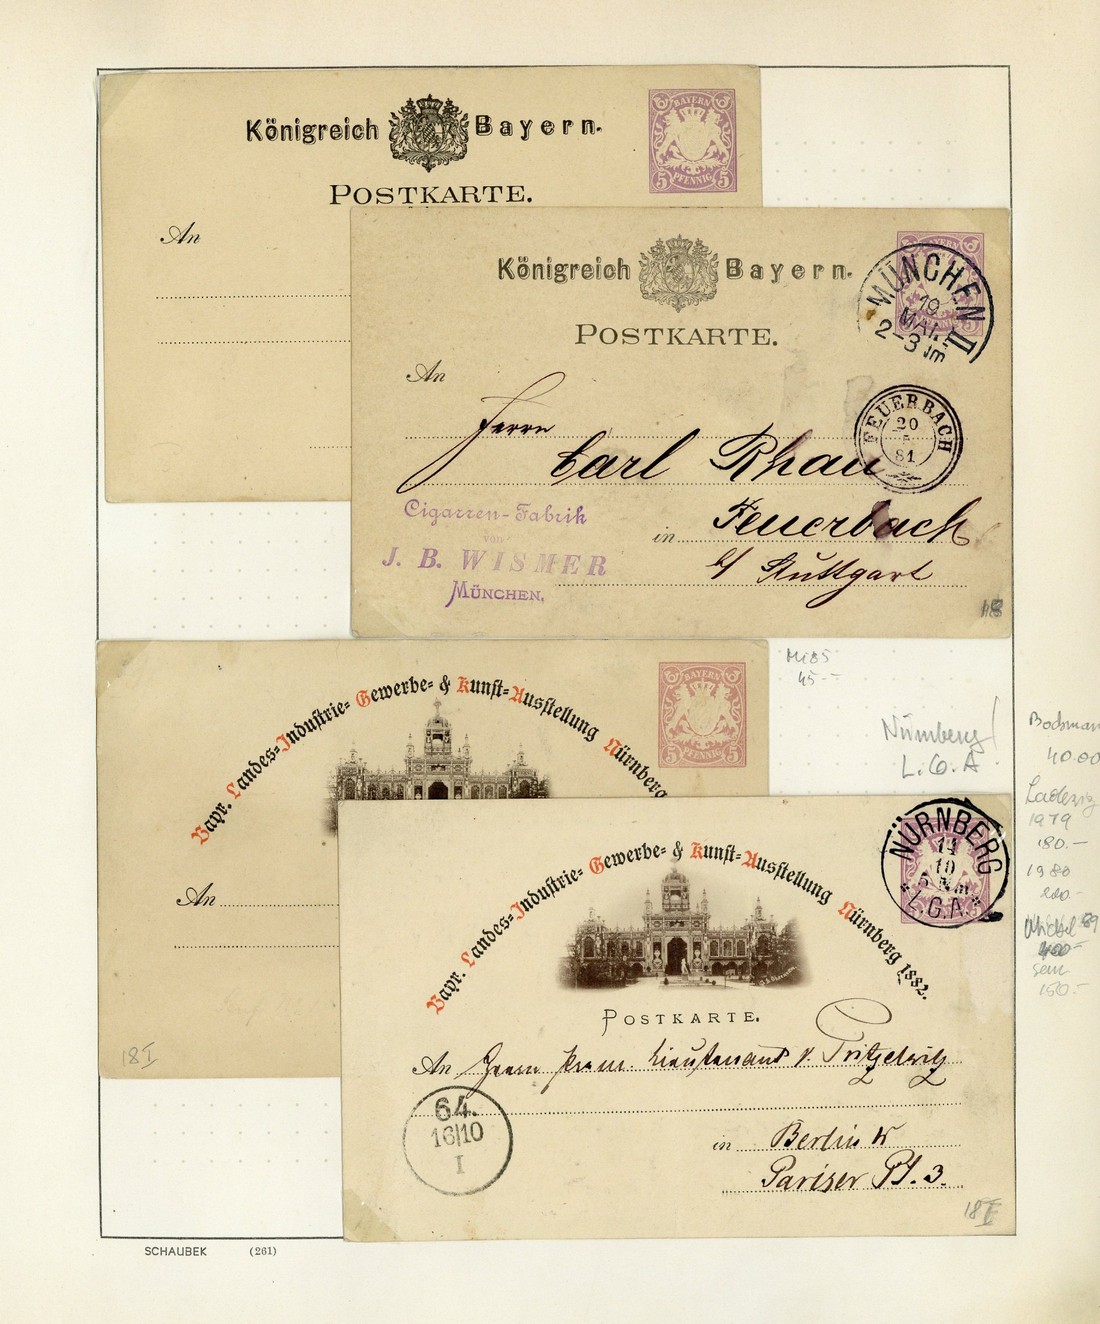 Königreich Bayern.
POSTKARTE.
An
5 BAYERN 5
5 PFENNIG 5
Königreich Bayern.
POSTKARTE.
An
MÜNCHEN II
19
MAI.
2-3 Nm
FEUERBACH
20
5
81
Herrn
Carl Rhau
in Feuerbach
b/ Stuttgart
Cigarren-Fabrik
von
J. B. WISMER
MÜNCHEN.
18
Mi 85
45.-
Bayr. Landes-Industrie- Gewerbe- & Kunst-Ausstellung Nürnberg
5 BAYERN 5
5 PFENNIG 5
An
18 I
Nürnberg!
L.G.A
40.00
1979
180.-
1980
Michel 89
150.-
Bayr. Landes-Industrie- Gewerbe- & Kunst-Ausstellung Nürnberg 1882.
POSTKARTE.
NÜRNBERG
14
10
5 Nm
"L.G.A."
An Herrn Prem. Lieutenant v. Pritzelwitz
64.
16|10
I
in Berlin W
Pariser Pl. 3.
18 I
SCHAUBEK (261)